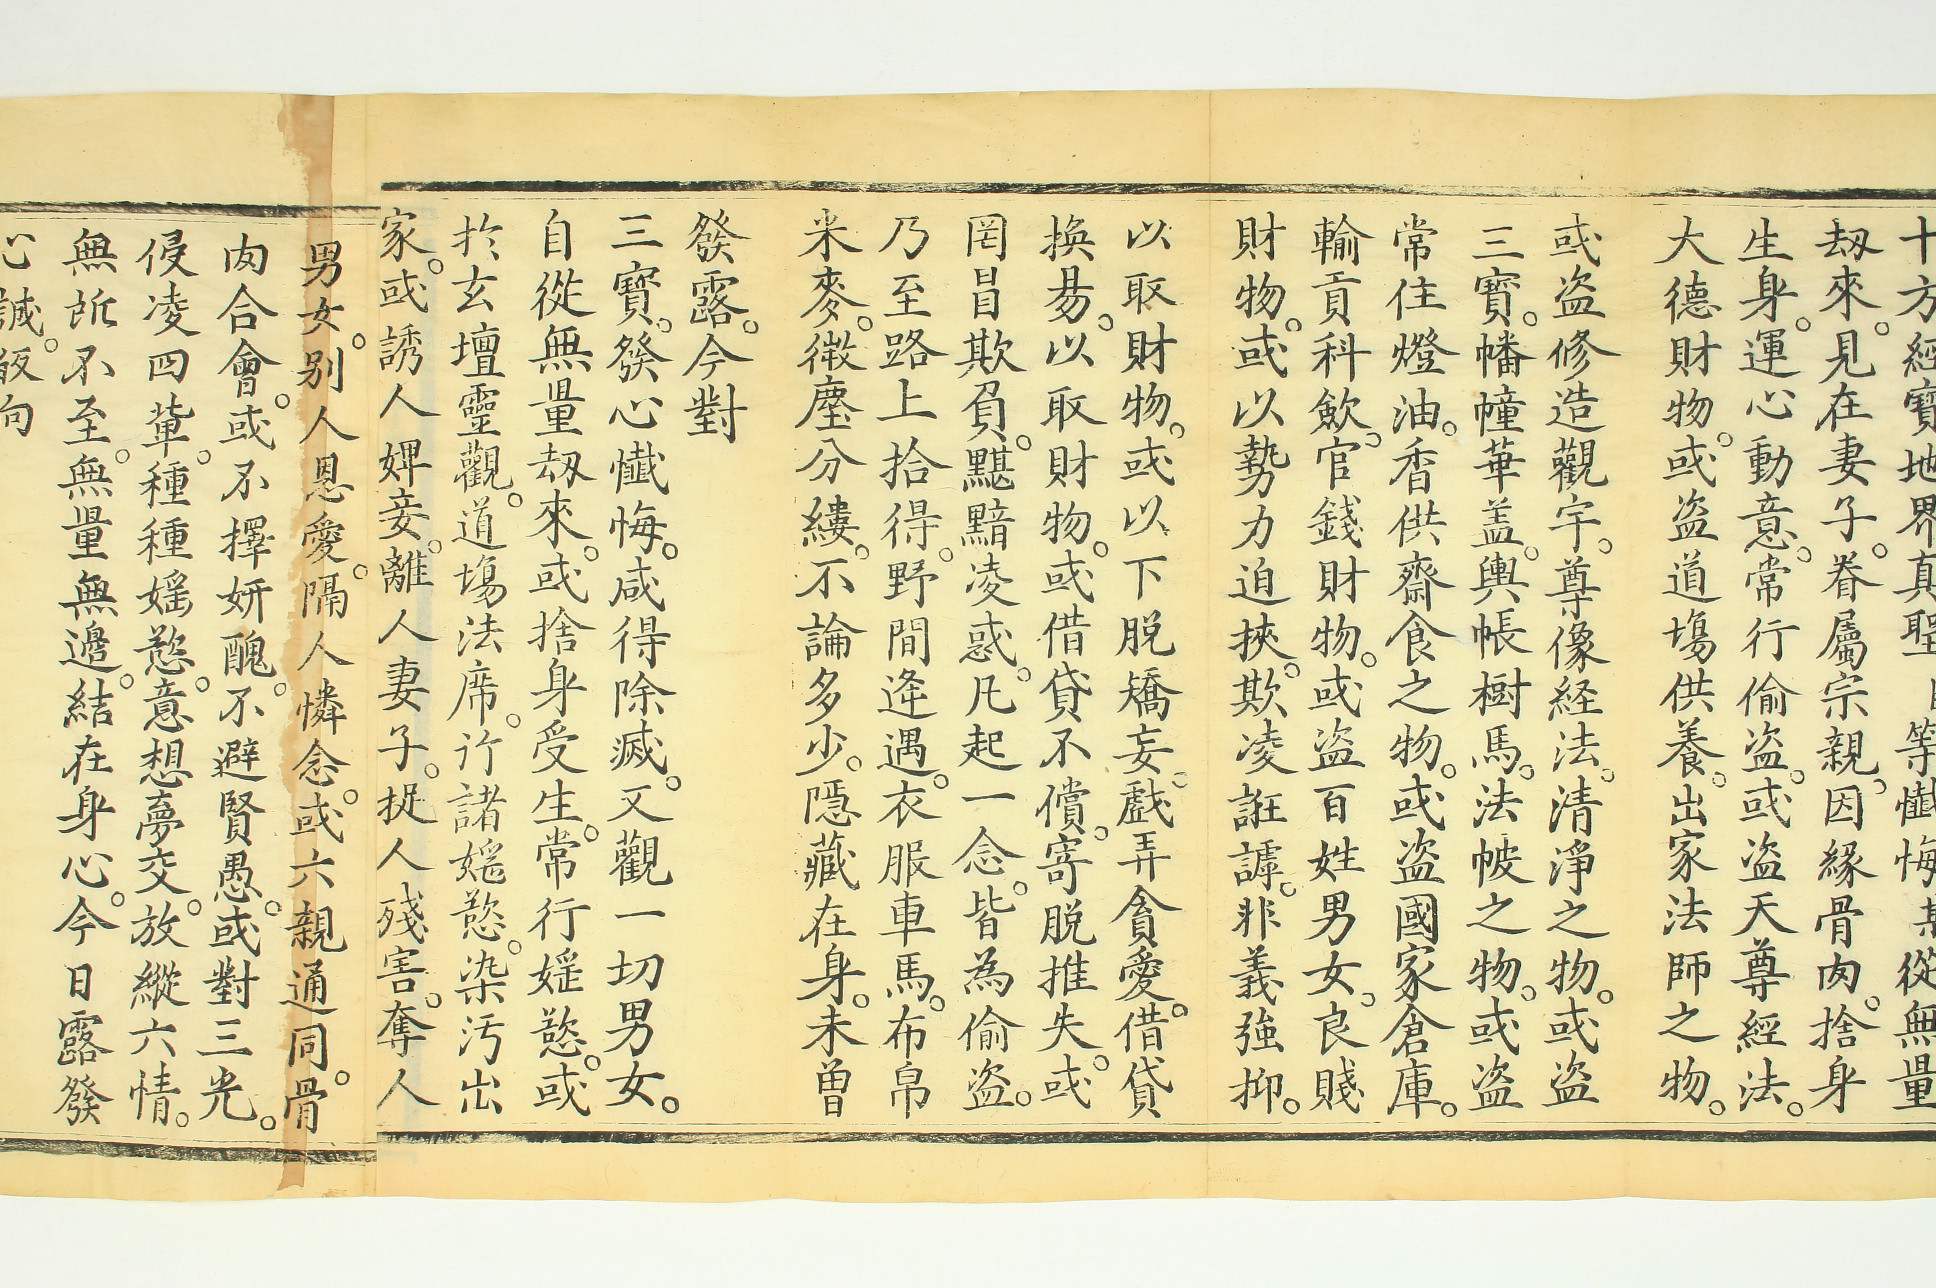 十方經寶地界真聖自等懴悔某從無量
刼來。見在妻子。眷屬宗親。因緣骨肉。捨身
生身。運心動意。常行偷盗。或盗天尊經法。
大德財物。或盗道塲供養。出家法師之物。
或盗修造觀宇。尊像経法。清淨之物。或盗
三寶。幡幢華盖。輿帳樹馬。法帔之物。或盗
常住燈油。香供齋食之物。或盗國家倉庫。
輸貢科歛。官錢財物。或盗百姓男女。良賤
財物。或以勢力迫挾。欺凌誑謼。非義強抑。
以取財物。或以下脱矯妄。戲弄貪愛。借貸
換易。以取財物。或借貸不償。寄脱推失。或
罔冒欺負。黮黯凌惑。凡起一念。皆為偷盗。
乃至路上拾得。野間逢遇。衣服車馬。布帛
米麥。微塵分縷。不論多少。隱藏在身。未曾
發露。今對
三寶。發心懴悔。咸得除滅。又觀一切男女。
自從無量刼來。或捨身受生。常行婬慾。或
扵玄壇靈觀。道塲法席。行諸婬慾。染汚出
家。或誘人婢妾。離人妻子。捉人殘害。奪人
男女。别人恩愛。隔人憐念。或六親通同。骨
肉合會。或不擇妍醜。不避賢愚。或對三光。
侵凌四輩。種種婬慾。意想夢交。放縱六情。
無所不至。無量無邊。結在身心。今日露發
心誠。皈向